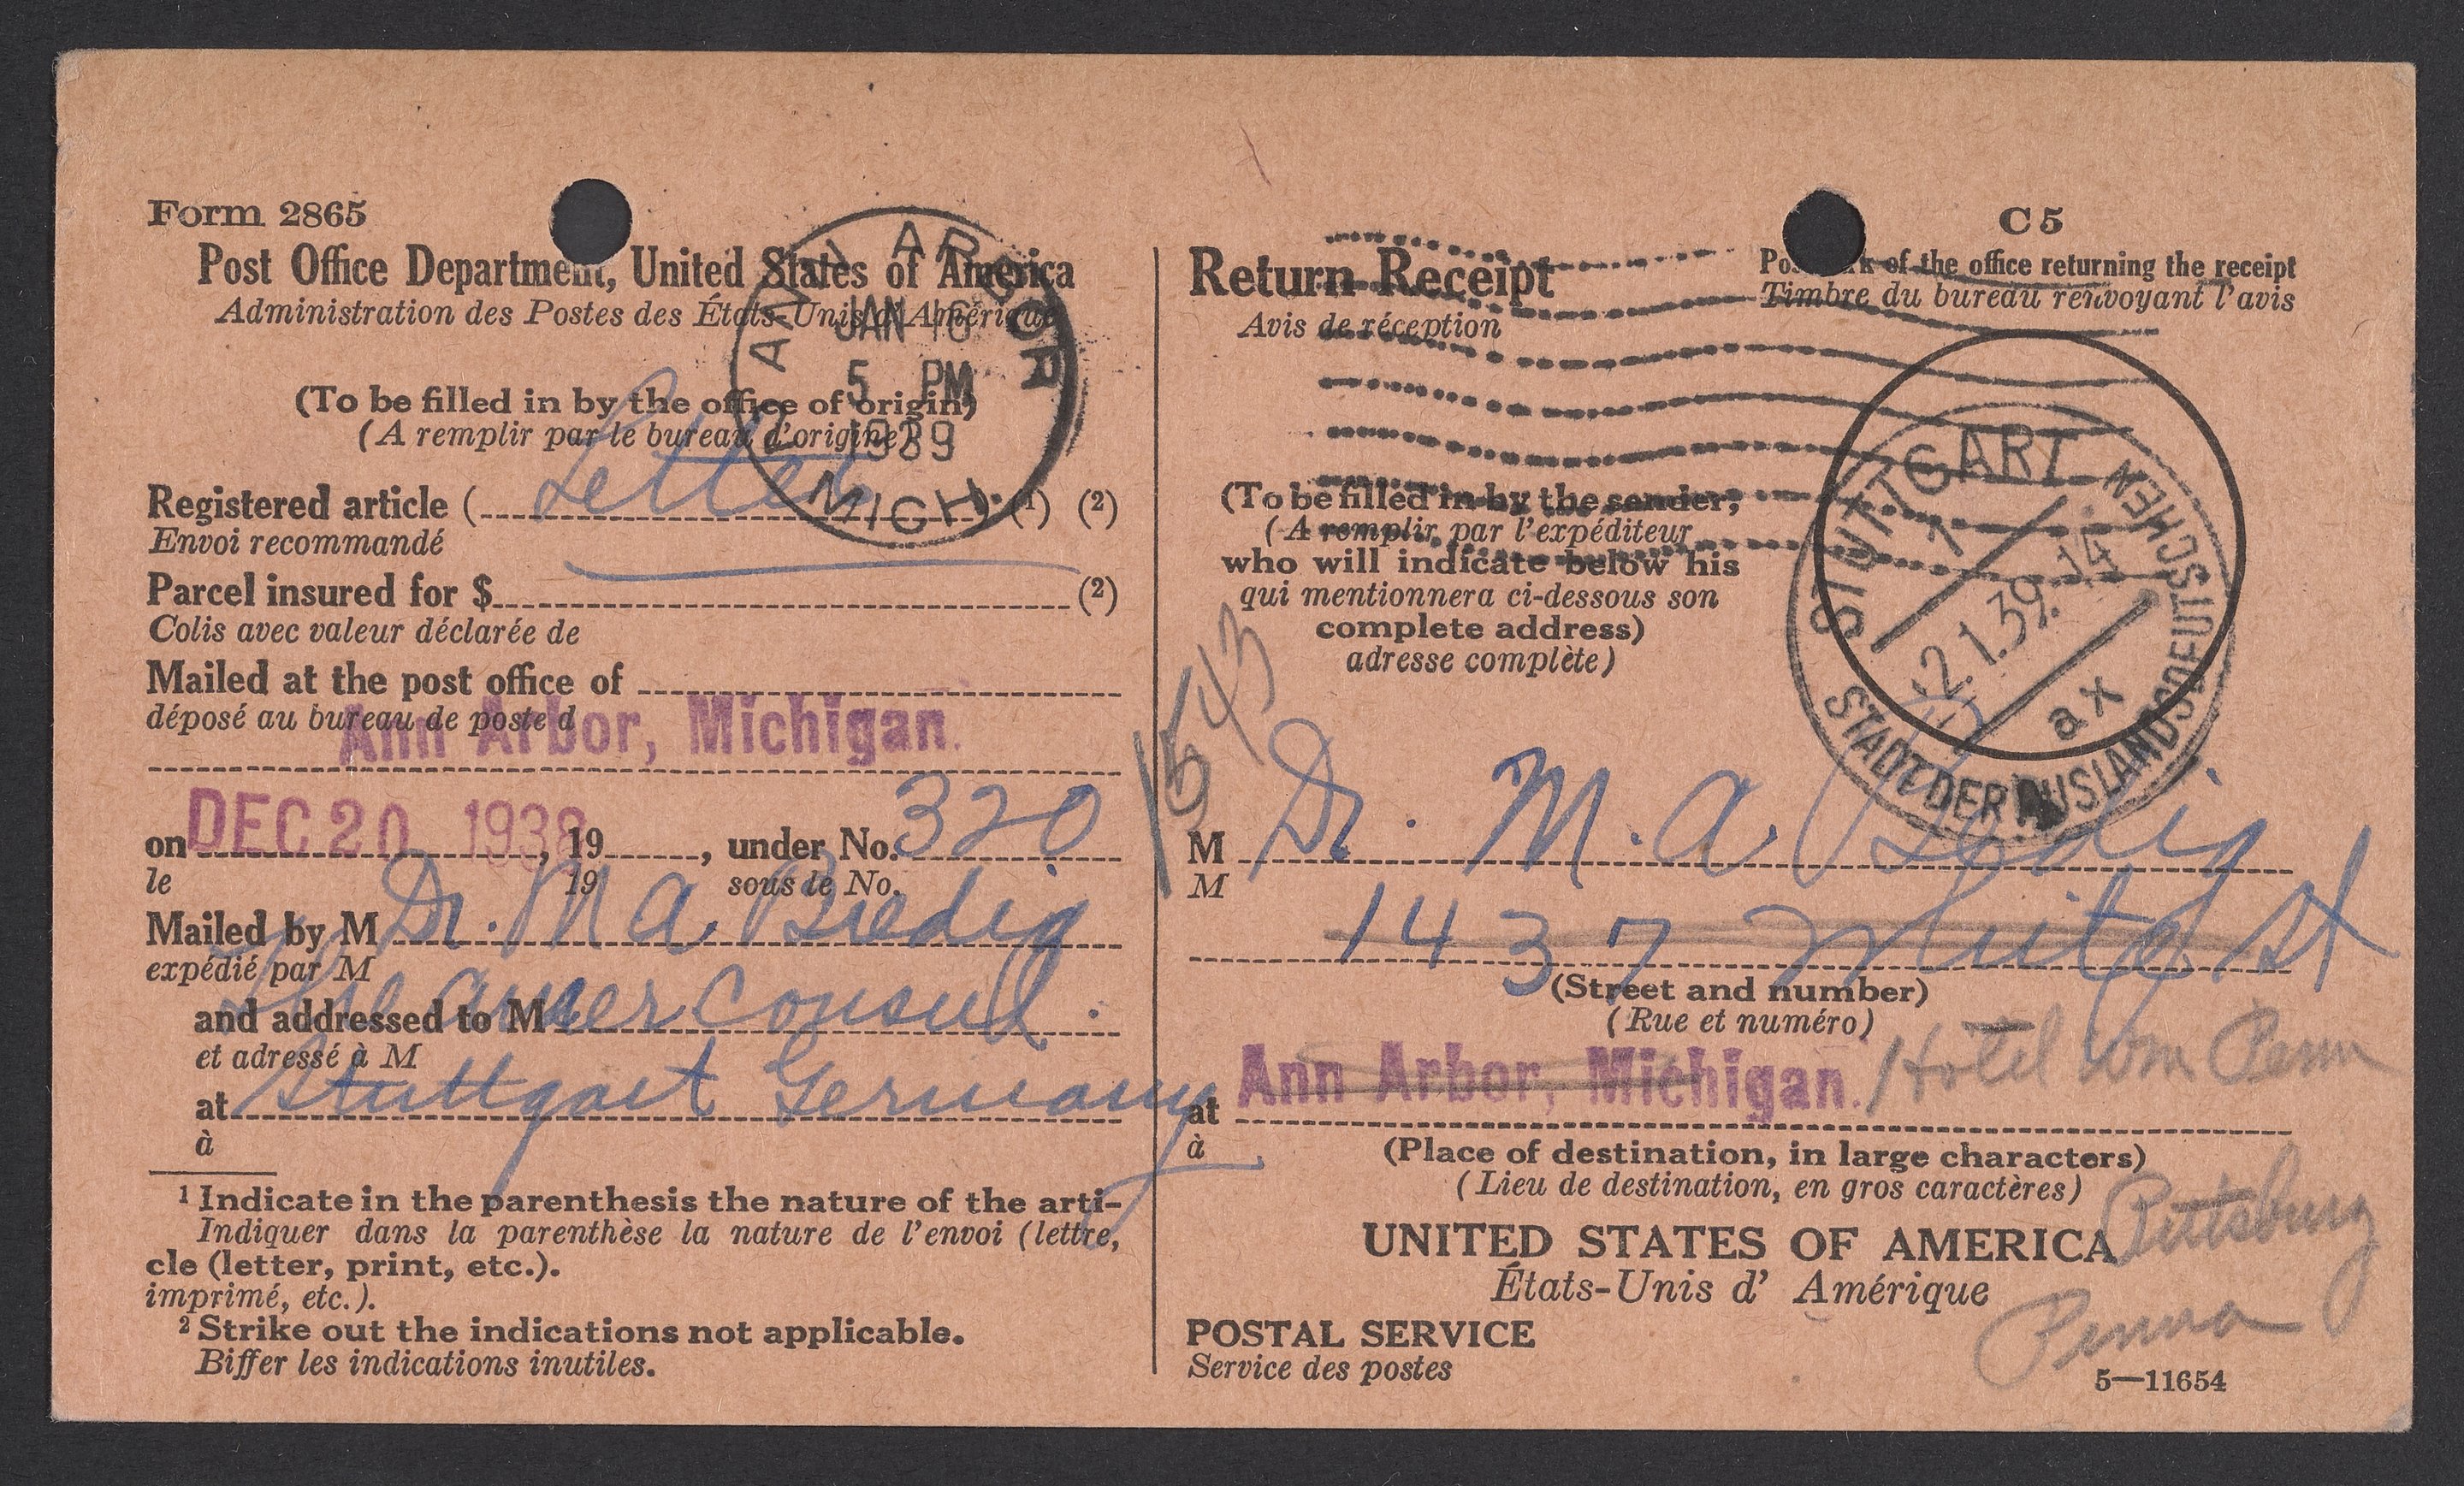 Form 2865
Post Office Department, United States of America
Administration des Postes des États-Unis d'Amérique
ANN ARBOR
JAN 16
5 PM
1939
MICH.
(To be filled in by the office of origin)
(A remplir par le bureau d'origine)
Registered article (Letter) (1) (2)
Envoi recommandé
Parcel insured for $ (2)
Colis avec valeur déclarée de
Mailed at the post office of
déposé au bureau de poste d
Ann Arbor, Michigan.
on DEC 20 1938, 19, under No. 320
le 19 sous le No.
Mailed by M Dr. M A Bredig
expédié par M
and addressed to M The Amer Consul
et adressé à M
at Stuttgart Germany
à
1 Indicate in the parenthesis the nature of the arti-
Indiquer dans la parenthèse la nature de l'envoi (lettre,
cle (letter, print, etc.).
imprimé, etc.).
2 Strike out the indications not applicable.
Biffer les indications inutiles.
C 5
Return Receipt
Avis de réception
Postmark of the office returning the receipt
Timbre du bureau renvoyant l'avis
STUTTGART
1
-2.1.39.-14
ax
STADT DER AUSLANDSDEUTSCHEN
(To be filled in by the sender,
(A remplir par l'expéditeur
who will indicate below his
qui mentionnera ci-dessous son
complete address)
adresse complète)
1543
M Dr. M. A. Bredig
M
1437 St
(Street and number)
(Rue et numéro)
at Ann Arbor, Michigan. Hotel Wm Penn
à
(Place of destination, in large characters)
(Lieu de destination, en gros caractères)
Pittsburg
UNITED STATES OF AMERICA
États-Unis d' Amérique
Penna
POSTAL SERVICE
Service des postes
5—11654